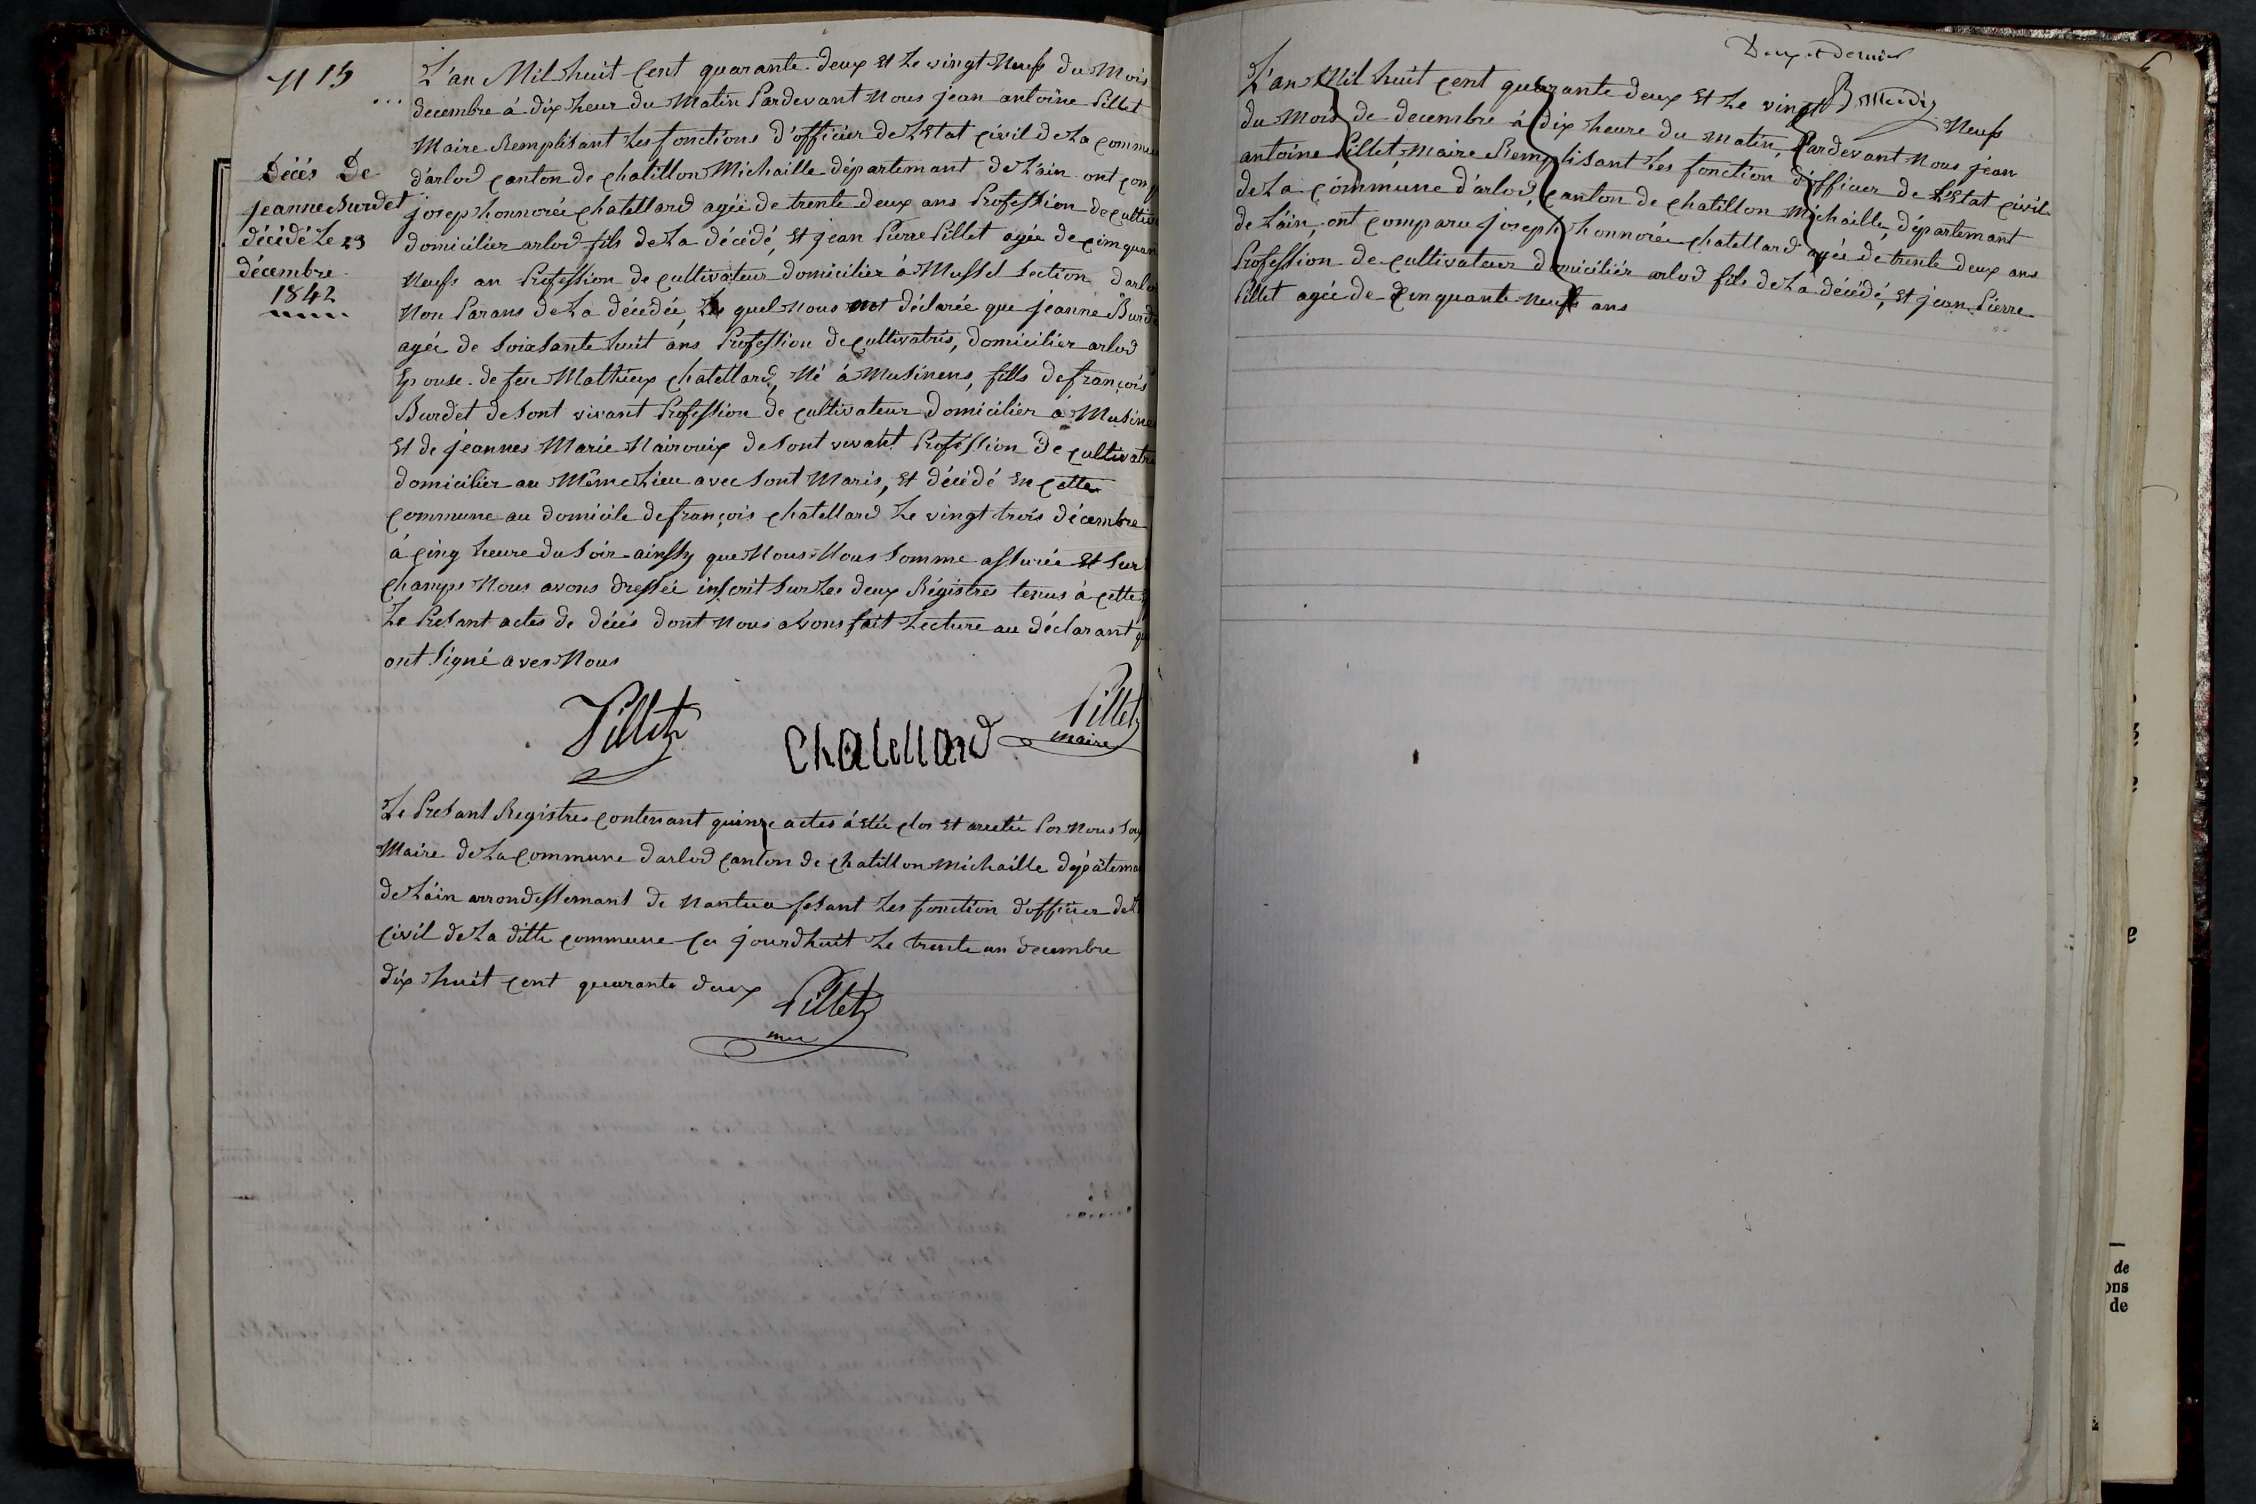 N 15
Décés De
jeanne Burdet
décédé Le 23
décembre
1842
L'an Mil huit Cent quarante deux Et Le vingt Neufs du Mois
decembre à dix heur du Matin Pardevant Nous jean antoine Pillet
Maire Remplisant Les fonctions d'officier de L'Etat civil de La commu
d'arlod canton de chatillon Michaille départemant de L'ain ont comp
joseph honnorée chatellard agée de trente deux ans Profession de cultiva
domicilier arlod fils de La décédé, Et jean Pierre Pillet agée de cinquan
Neufs an Profession de cultivateur domicilier à Mussel Section d'arlo
Non Parans de La décédée, Les quel Nous ont déclarée que jeanne Burde
agée de Soixsante huit ans Profession de cultivatris, domicilier arlod
Epouse de feu Mathieux chatellard, Né à Musinens, fills de françois
Burdet de Sont vivant Profession de cultivateur Domicilier à Musine
Et de jeannes Marie Mairouix de Sont vivant Profession De cultivatri
domicilier au Même Lieu avec Sont Maris, Et décédé En cette
commune au domicile de françois chatellard Le vingt trois décembre
à cinq heure du Soir ainssy que Nous Nous Somme assurée Et Sur
champs Nous avons dressée inscrit Sur Les deux Régistres tenus à cette
Le Presant actes de décés dont Nous avons fait Lecture au déclarant q
ont Signé aves Nous
Pillet Chatellard Pillet
maire
Le Presant Registres contenant quinze actes à Etée clos Et aretée Par Nous Sou
Maire de La commune d'arlod canton de chatillon Michaille départema
de L'ain arrondissemant de Nantua fesant Les fonction d'officier de L
civil de La ditte commune Ce jourdhuit Le trente un decembre
dix huit cent quarante deux
Pillet
mre
Deux et dernier
L'an Mil huit cent quarante deux Et Le vingt Neufs
du Mois de decembre à dix heure du matin, Pardevant Nous jean
antoine Pillet, Maire Remplisant Les fonction d'officier de L'Etat civil
de La commune d'arlod, canton de chatillon Michaille, départemant
de L'ain, ont comparu joseph honnorée chatellard agée de trente deux ans
Profession de cultivateur domiciliér arlod fils de La décédé, Et jean Pierre
Pillet agée de Cinquante Neufs ans